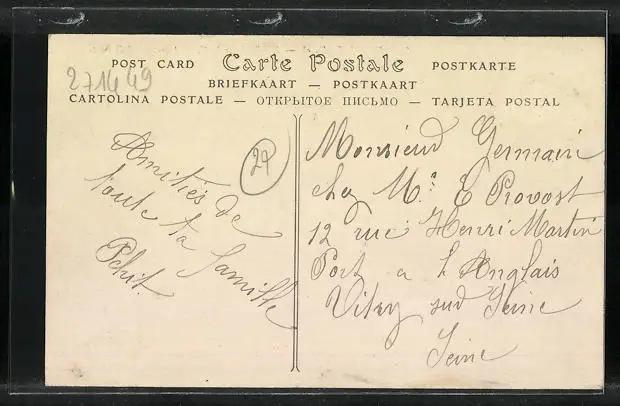 POST CARD Carte Postale POSTKARTE
BRIEFKAART — POSTKAART
CARTOLINA POSTALE — ОТКРЫТОЕ ПИСЬМО — TARJETA POSTAL
271449
29
Amitiés de
toute ta famille
Petit.
Monsieur Germain
chez Mr E Provost
12 rue Henri Martin
Port a l'Anglais
Vitry sur Seine
Seine